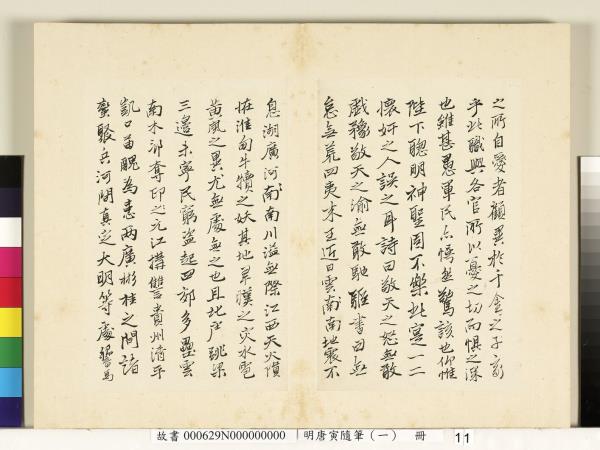 之所自愛者顧異於千金之子哉
乎此職與各官所以憂之切而懼之深
也雖甚愚軍氏亦懷無驚該也仰惟
陛下聰明神聖固不樂此寔一二
懷奸之人誤之耳詩曰敬天之怒無敢
戲豫敬天之渝無敢馳驅書曰無
怠無荒四夷來王近日雲南南地震不
息湖廣河南南川溢無際江西天火隕
怪淮甸牛犢之妖其地旱潦之災水雹
苗風之異尤無處無之也且北虜跳梁
三邊未寧民窮盜起四郊多壘雲
南木邦奪印之元江搆讐貴州清平
凱口苗醜為恚兩廣彬桂之間諸
蠻驟兵河間真定大明等處響馬
故書 000629N000000000 明唐寅隨筆(一) 冊 11